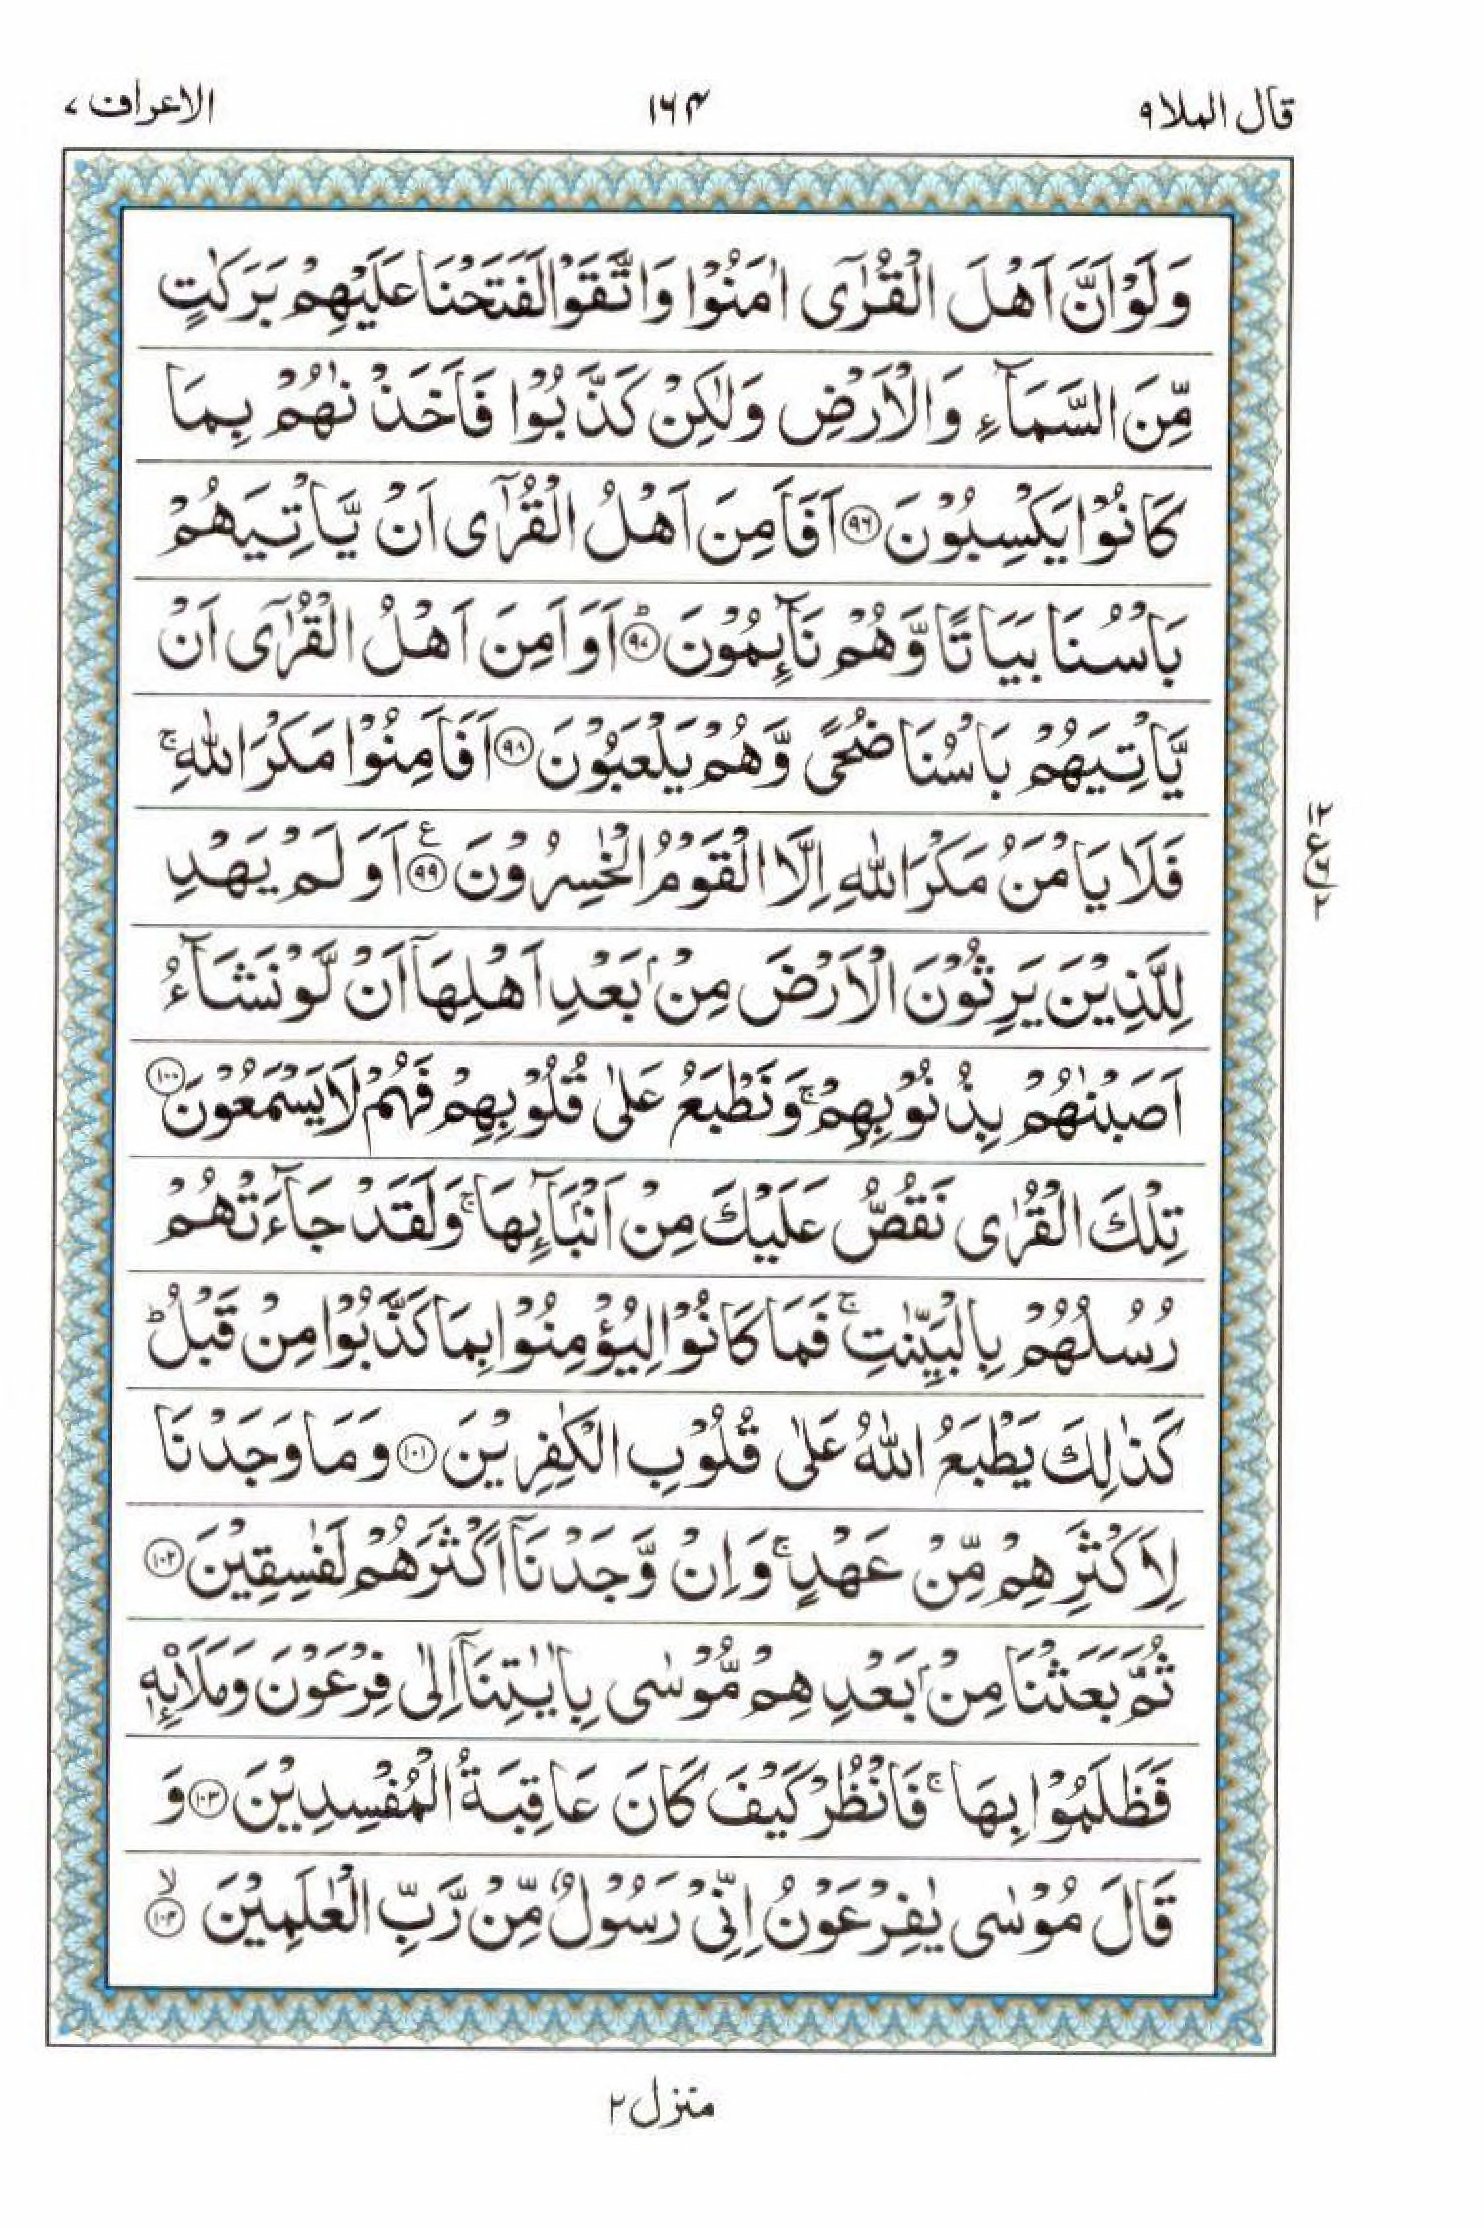 قال الملا ٩ ١٦٤ الاعراف ٧
وَلَوْ اَنَّ اَهْلَ الْقُرٰۤى اٰمَنُوْا وَاتَّقَوْا لَفَتَحْنَا عَلَيْهِمْ بَرَكٰتٍ
مِّنَ السَّمَآءِ وَالْاَرْضِ وَلٰكِنْ كَذَّبُوْا فَاَخَذْنٰهُمْ بِمَا
كَانُوْا يَكْسِبُوْنَ ﴿٩٦﴾ اَفَاَمِنَ اَهْلُ الْقُرٰۤى اَنْ يَّاْتِيَهُمْ
بَاْسُنَا بَيَاتًا وَّهُمْ نَآىِٕمُوْنَ ؕ﴿٩٧﴾ اَوَاَمِنَ اَهْلُ الْقُرٰۤى اَنْ
يَّاْتِيَهُمْ بَاْسُنَا ضُحًى وَّهُمْ يَلْعَبُوْنَ ﴿٩٨﴾ اَفَاَمِنُوْا مَكْرَ اللّٰهِ ۚ
فَلَا يَاْمَنُ مَكْرَ اللّٰهِ اِلَّا الْقَوْمُ الْخٰسِرُوْنَ ﴿٩٩﴾ ع اَوَلَمْ يَهْدِ
١٢
ع
٦
٢
لِلَّذِيْنَ يَرِثُوْنَ الْاَرْضَ مِنْۢ بَعْدِ اَهْلِهَاۤ اَنْ لَّوْ نَشَآءُ
اَصَبْنٰهُمْ بِذُنُوْبِهِمْ ۚ وَنَطْبَعُ عَلٰى قُلُوْبِهِمْ فَهُمْ لَا يَسْمَعُوْنَ ﴿١٠٠﴾
تِلْكَ الْقُرٰى نَقُصُّ عَلَيْكَ مِنْ اَنْۢبَآىِٕهَا ۚ وَلَقَدْ جَآءَتْهُمْ
رُسُلُهُمْ بِالْبَيِّنٰتِ ۚ فَمَا كَانُوْا لِيُؤْمِنُوْا بِمَا كَذَّبُوْا مِنْ قَبْلُ ؕ
كَذٰلِكَ يَطْبَعُ اللّٰهُ عَلٰى قُلُوْبِ الْكٰفِرِيْنَ ﴿١٠١﴾ وَمَا وَجَدْنَا
لِاَكْثَرِهِمْ مِّنْ عَهْدٍ ۚ وَاِنْ وَّجَدْنَاۤ اَكْثَرَهُمْ لَفٰسِقِيْنَ ﴿١٠٢﴾
ثُمَّ بَعَثْنَا مِنْۢ بَعْدِهِمْ مُّوْسٰى بِاٰيٰتِنَاۤ اِلٰى فِرْعَوْنَ وَمَلَا۟ىِٕهٖ
فَظَلَمُوْا بِهَا ۚ فَانْظُرْ كَيْفَ كَانَ عَاقِبَةُ الْمُفْسِدِيْنَ ﴿١٠٣﴾ وَ
قَالَ مُوْسٰى يٰفِرْعَوْنُ اِنِّىْ رَسُوْلٌ مِّنْ رَّبِّ الْعٰلَمِيْنَ ۙ﴿١٠٤﴾
منزل ٢